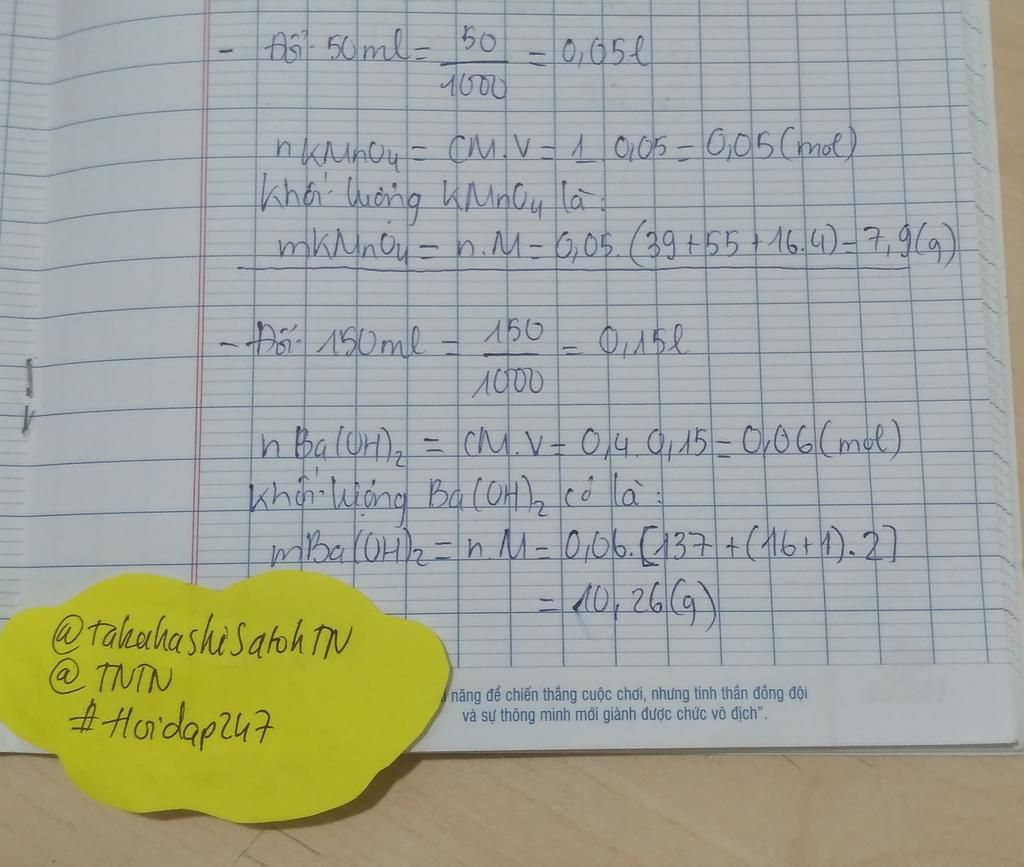 - Đổi 50ml = 50/1000 = 0,05l
nKMnO₄ = CM.V = 1.0,05 = 0,05 (mol)
Khối lượng KMnO₄ là:
mKMnO₄ = n.M = 0,05.(39+55+16.4) = 7,9(g)
- Đổi 150ml = 150/1000 = 0,15l
nBa(OH)₂ = CM.V = 0,4.0,15 = 0,06 (mol)
Khối lượng Ba(OH)₂ có là:
mBa(OH)₂ = n.M = 0,06.[137+(16+1).2]
= 10,26(g)
@TakahashiSatohTN
@TNTN
#Hoidap247
năng để chiến thắng cuộc chơi, nhưng tinh thần đồng đội
và sự thông minh mới giành được chức vô địch".